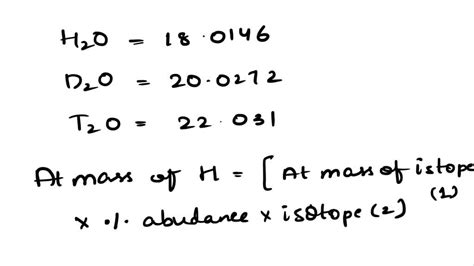 H₂O = 18.0146
D₂O = 20.0272
T₂O = 22.031
At mass of H = [At mass of istope (1)
x % abudance x isotope (2)